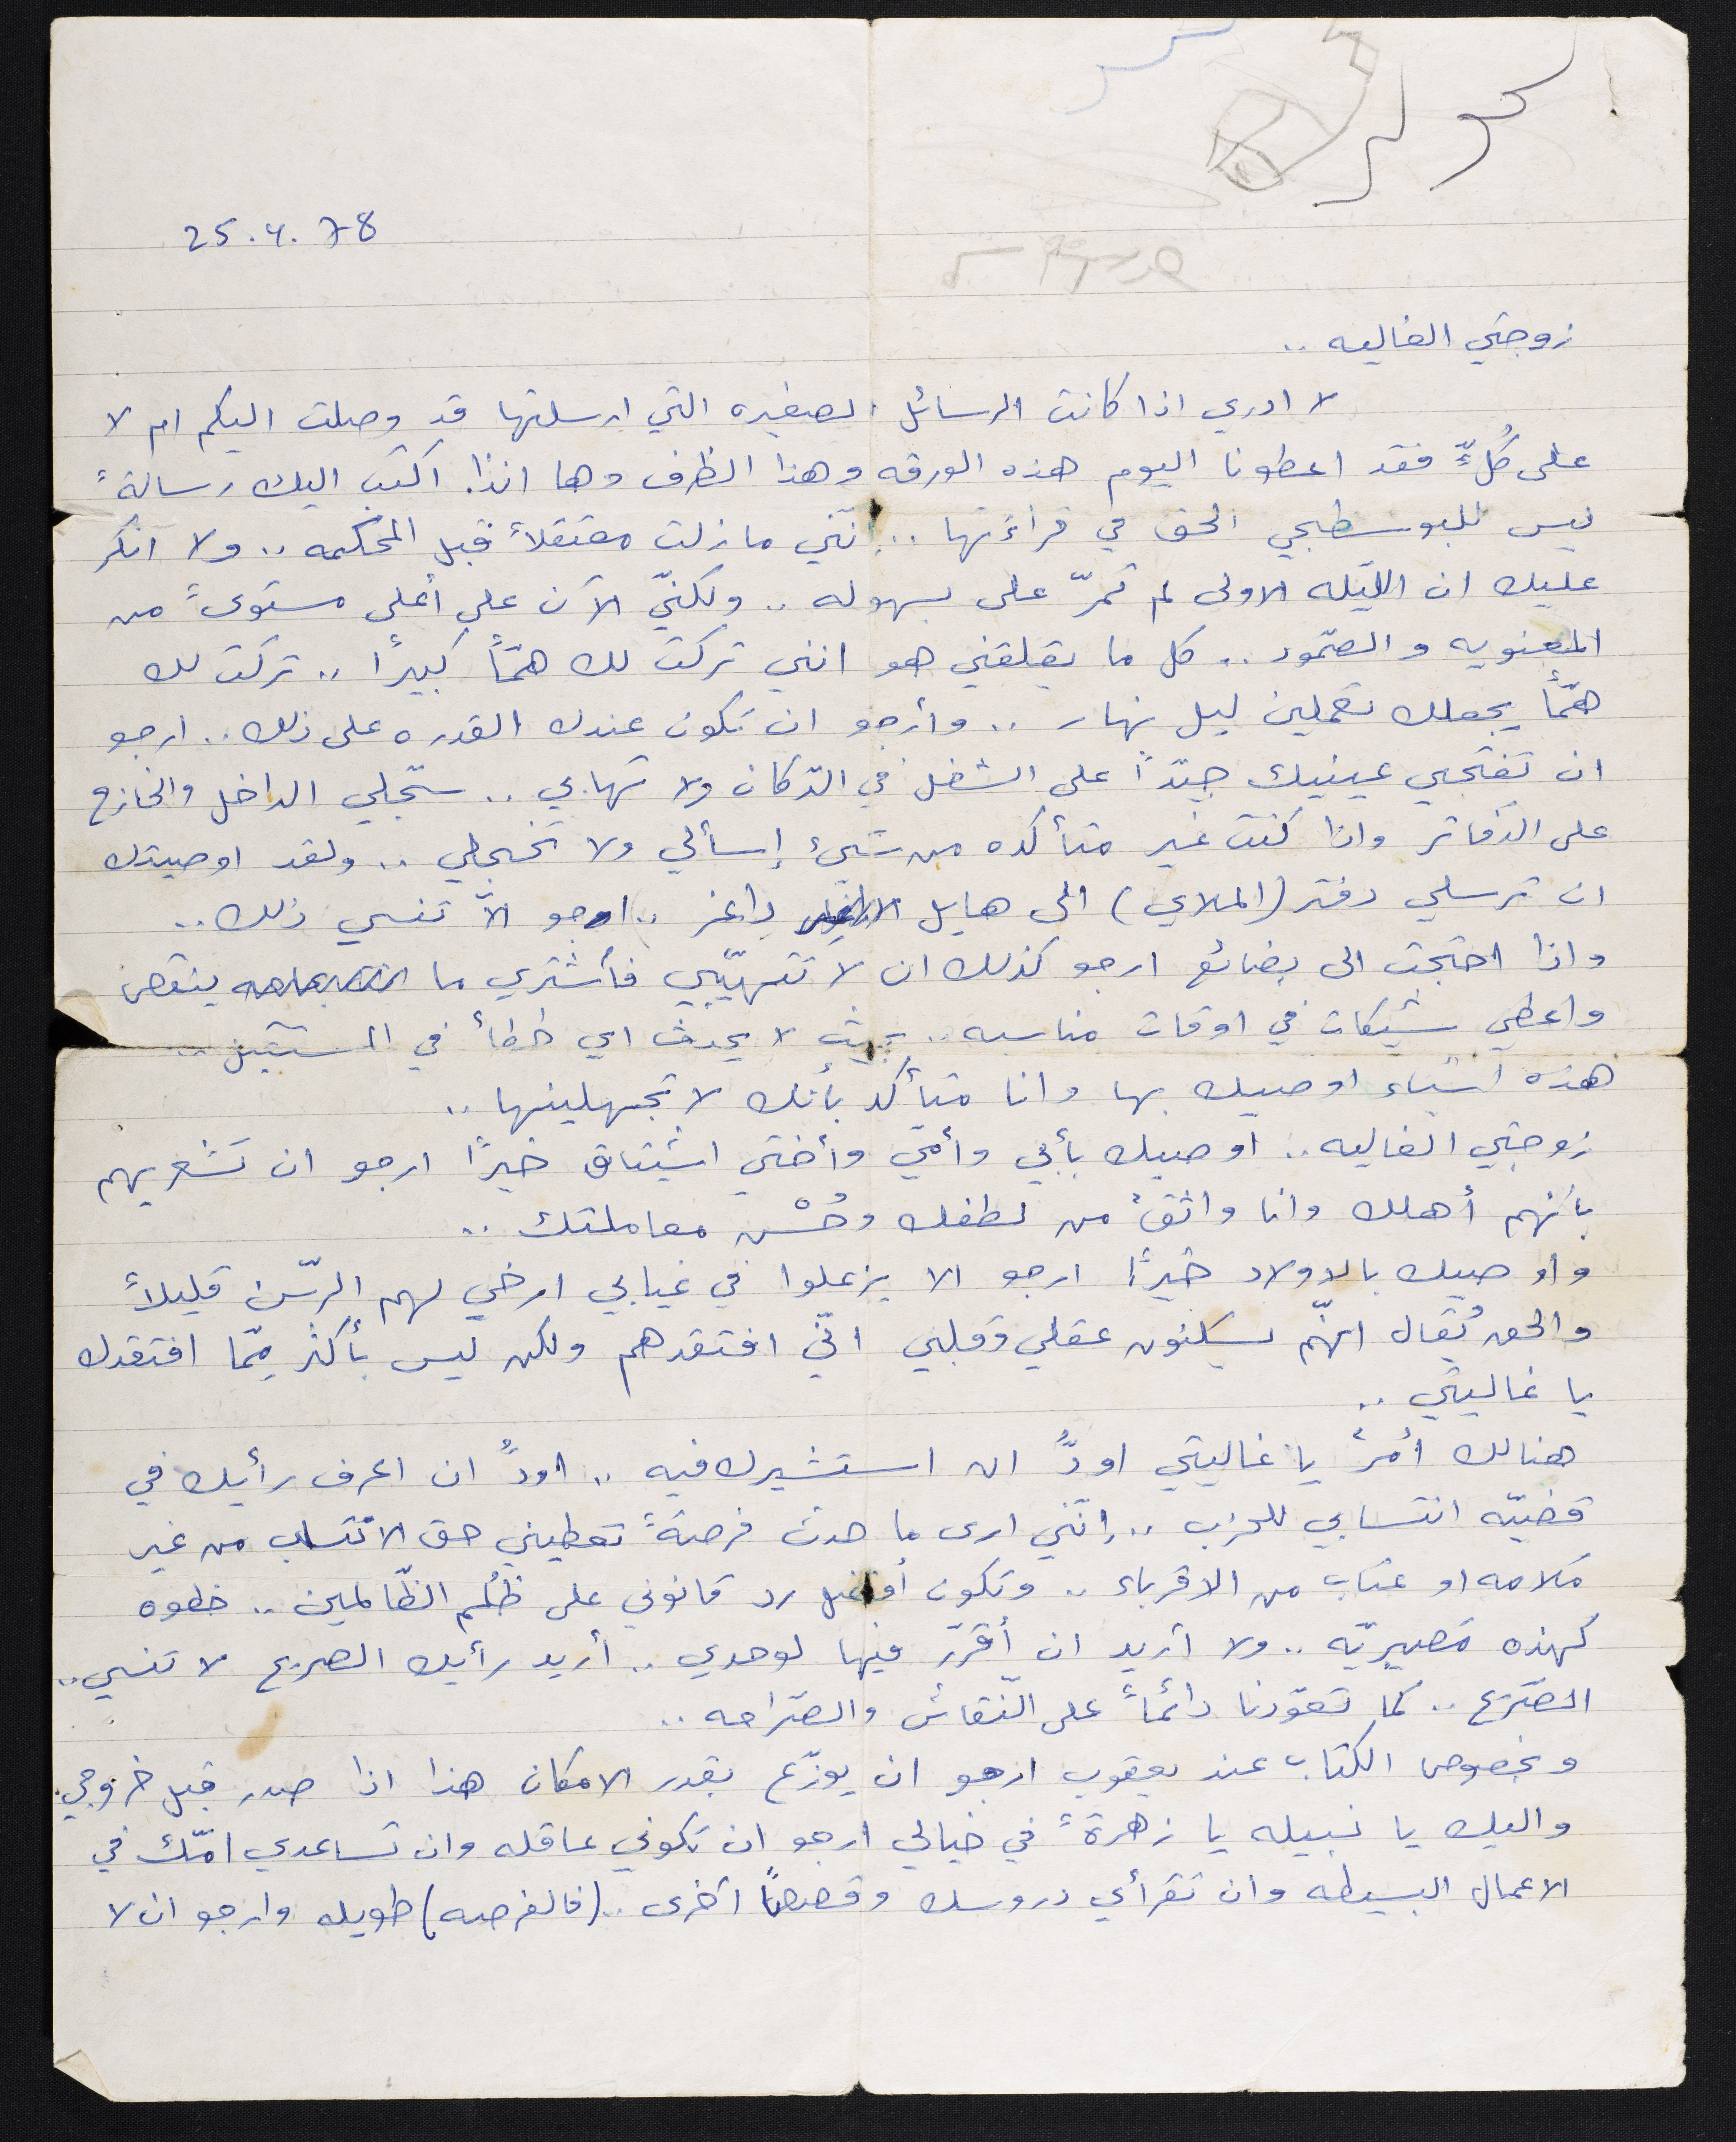 25.4.78
زوجتي الغاليه ..
لا ادري اذا كانت الرسائل الصغيره التي ارسلتها قد وصلت اليكم ام لا
على كُلٍّ فقد اعطونا اليوم هذه الورقه وهذا الظرف وها انذا اكتب اليك رسالةً
ليس للبوسطجي الحق في قراءتها .. إنّني ما زلت معتقلاً قبل المحكمه .. ولا انكر
عليك ان الليّله الاولى لم تمرّ على بسهوله .. ولكنّي الآن على أعلى مستوىً من
المعنويه والصّمود .. كل ما يقلقني هو انني تركت لك همّاً كبيرًا .. تركت لك
همّاً يجعلك تعملين ليل نهار .. وأرجو ان تكون عندك القدره على ذلك .. ارجو
ان تفتحي عينيك جيّدًا على الشغل في الدّكان ولا تهابي .. سجّلي الداخل والخارج
على الدّفاتر واذا كنت غير متأكده من شيئ إسألي ولا تخجلي .. ولقد اوصيتك
ان ترسلي دفتر (الملاي) الى هايل داغر .. ارجو الاّ تنسي ذلك ..
واذا احتجت الى بضائع ارجو كذلك ان لا تتهيّبي فأشتري ما ينقص
واعطي شيكات في اوقات مناسبه .. بحيث لا يحدث اي خطأ في المستقبل ..
هذه اشياء اوصيك بها وانا متأكد بأنك لا تجهلينها ..
زوجتي الغاليه .. اوصيك بأبي وأمّي وأختي اشتياق خيرًا ارجو ان تشعريهم
بأنهم أهلك وانا واثقٌ من لطفك وحُسْن معاملتك ..
واوصيك بالاولاد خيرًا ارجو الا يزعلوا في غيابي ارخي لهم الرّسن قليلاً
والحق يُقال انهّم يسكنون عقلي وقلبي انّي افتقدهم ولكن ليس بأكثر مِمّا افتقدك
يا غاليتي ..
هنالك أمرٌ يا غاليتي اودُّ ان استشيرك فيه .. اودُّ ان اعرف رأيك في
قضيّه انتسابي للحزب .. إنّني ارى ما حدث فرصةً تعطيني حق الانتساب من غير
ملامه او عتاب من الاقرباء .. وتكون أفضل رد قانوني على ظُلم الظّالمين .. خطوه
كهذه مصيريّه .. ولا أريد ان أقرّر فيها لوحدي .. أريد رأيك الصريح لا تنسي ..
الصّريح .. كما تعوّدنا دائماً على النّقاش والصّراحه ..
وبخصوص الكتاب عند يعقوب ارجو ان يوزّع بقدر الامكان هذا اذا صدر قبل خروجي .
واليك يا نبيله يا زهرةً في خيالي ارجو ان تكوني عاقله وان تساعدي امّك في
الاعمال البسيطه وان تقرأي دروسك وقصصاً أخرى .. (فالفرصه) طويله وارجو ان لا